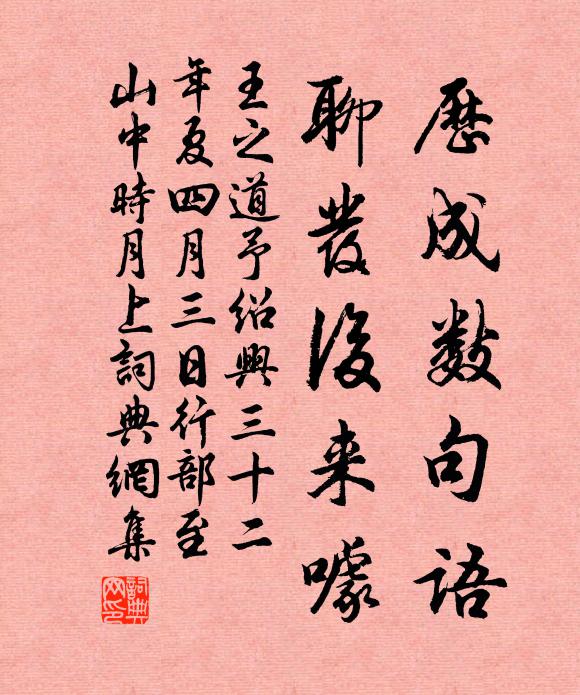 歷成數句語
聊發後来噱
王之道予紹興三十二
年夏四月三日行部至
山中時月上詞典網集
詞典
网印